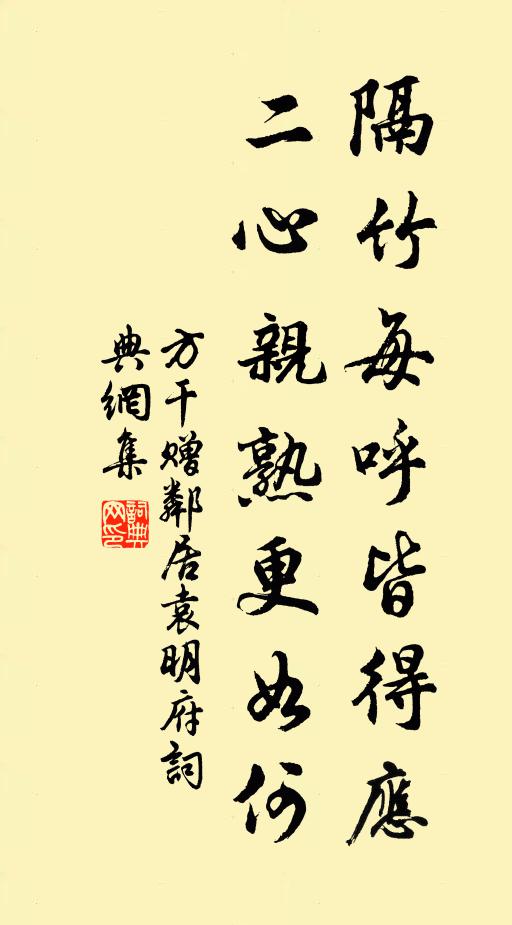 隔竹每呼皆得應
二心親熟更如何
方干贈鄰居袁明府詞
典網集
詞典網印